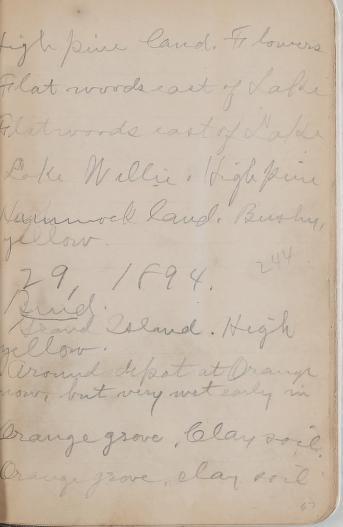 High pine land. Flowers
Flat woods east of Lake
Flatwoods east of Lake
Lake Willie. High pine
Hammock land. Bushy,
yellow.
244.
29, 1894.
Grand Island. High
yellow.
Around depot at Orange
now, but very wet early in
Orange grove, Clay soil.
Orange grove, clay soil
67